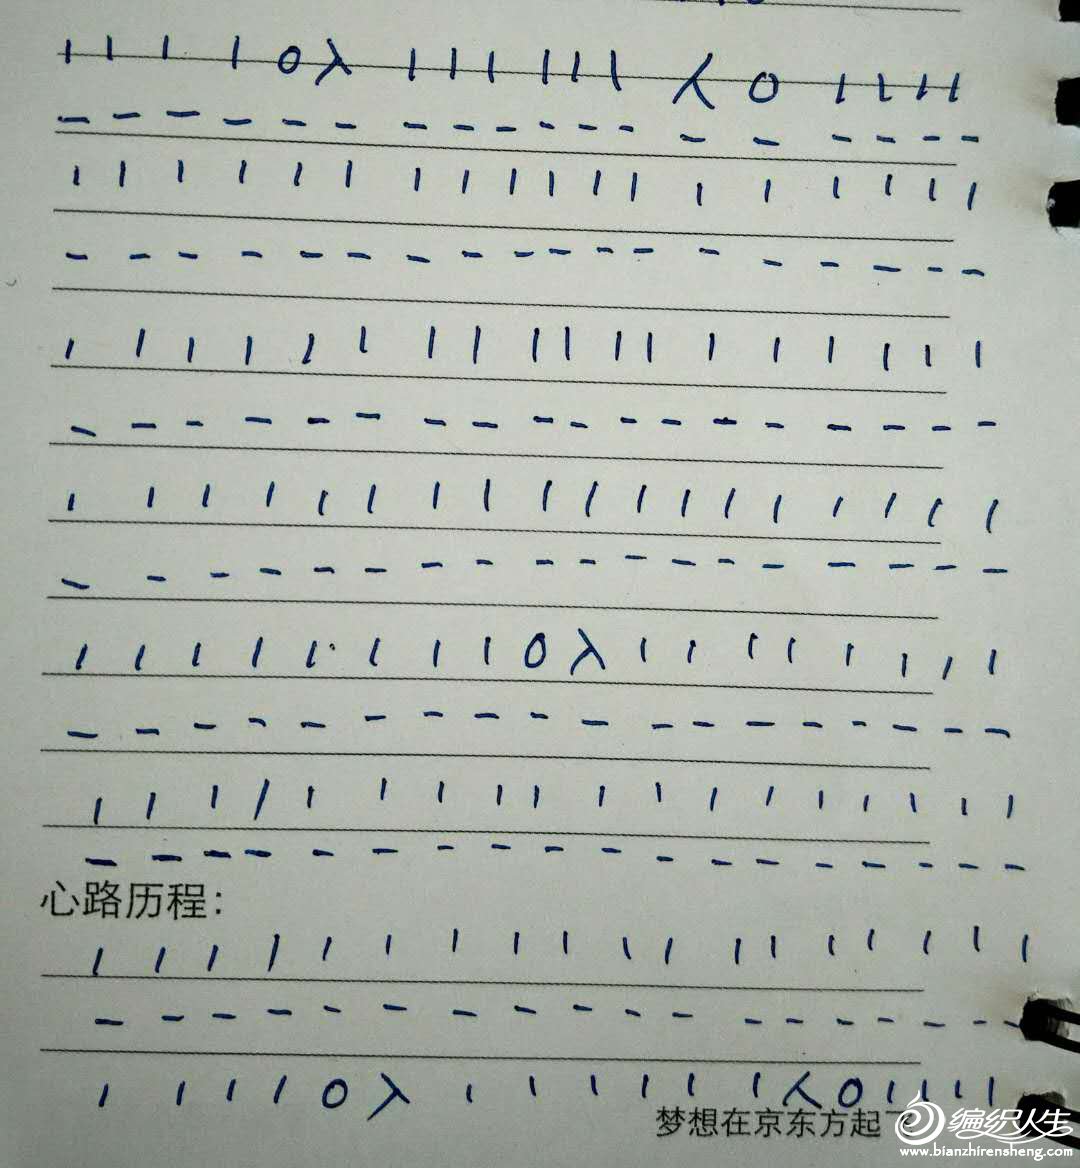 | | | | O 入 | | | | | | 人 O | | | |
- - - - - - - - - - - - - - - - - -
| | | | | | | | | | | | | | | | | |
- - - - - - - - - - - - - - - - - -
| | | | | | | | | | | | | | | | | |
- - - - - - - - - - - - - - - - - -
| | | | | | | | | | | | | | | | | |
- - - - - - - - - - - - - - - - - -
| | | | | | | | O 入 | | | | | | | |
- - - - - - - - - - - - - - - - - -
| | | | | | | | | | | | | | | | | |
- - - - - - - - - - - - - - - - - -
心路历程:
| | | | | | | | | | | | | | | | | |
- - - - - - - - - - - - - - - - - -
| | | | O 入 | | | | | | 人 O | | | |
梦想在京东方起
编织人生
www.bianzhirensheng.com